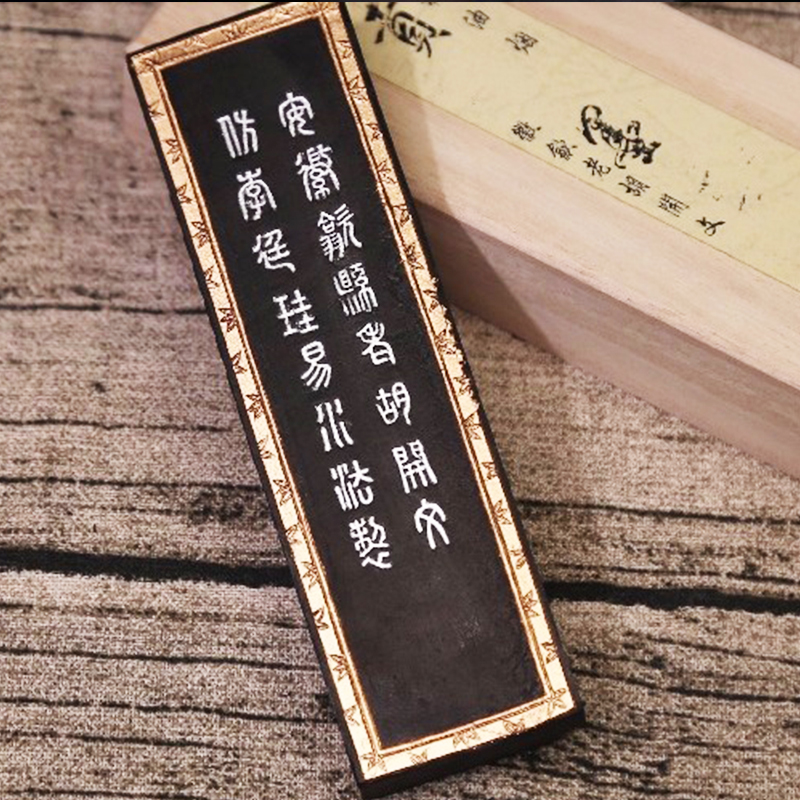 安徽歙縣老胡開文
仿李廷珪易水法製
油烟
墨
徽歙老胡開文